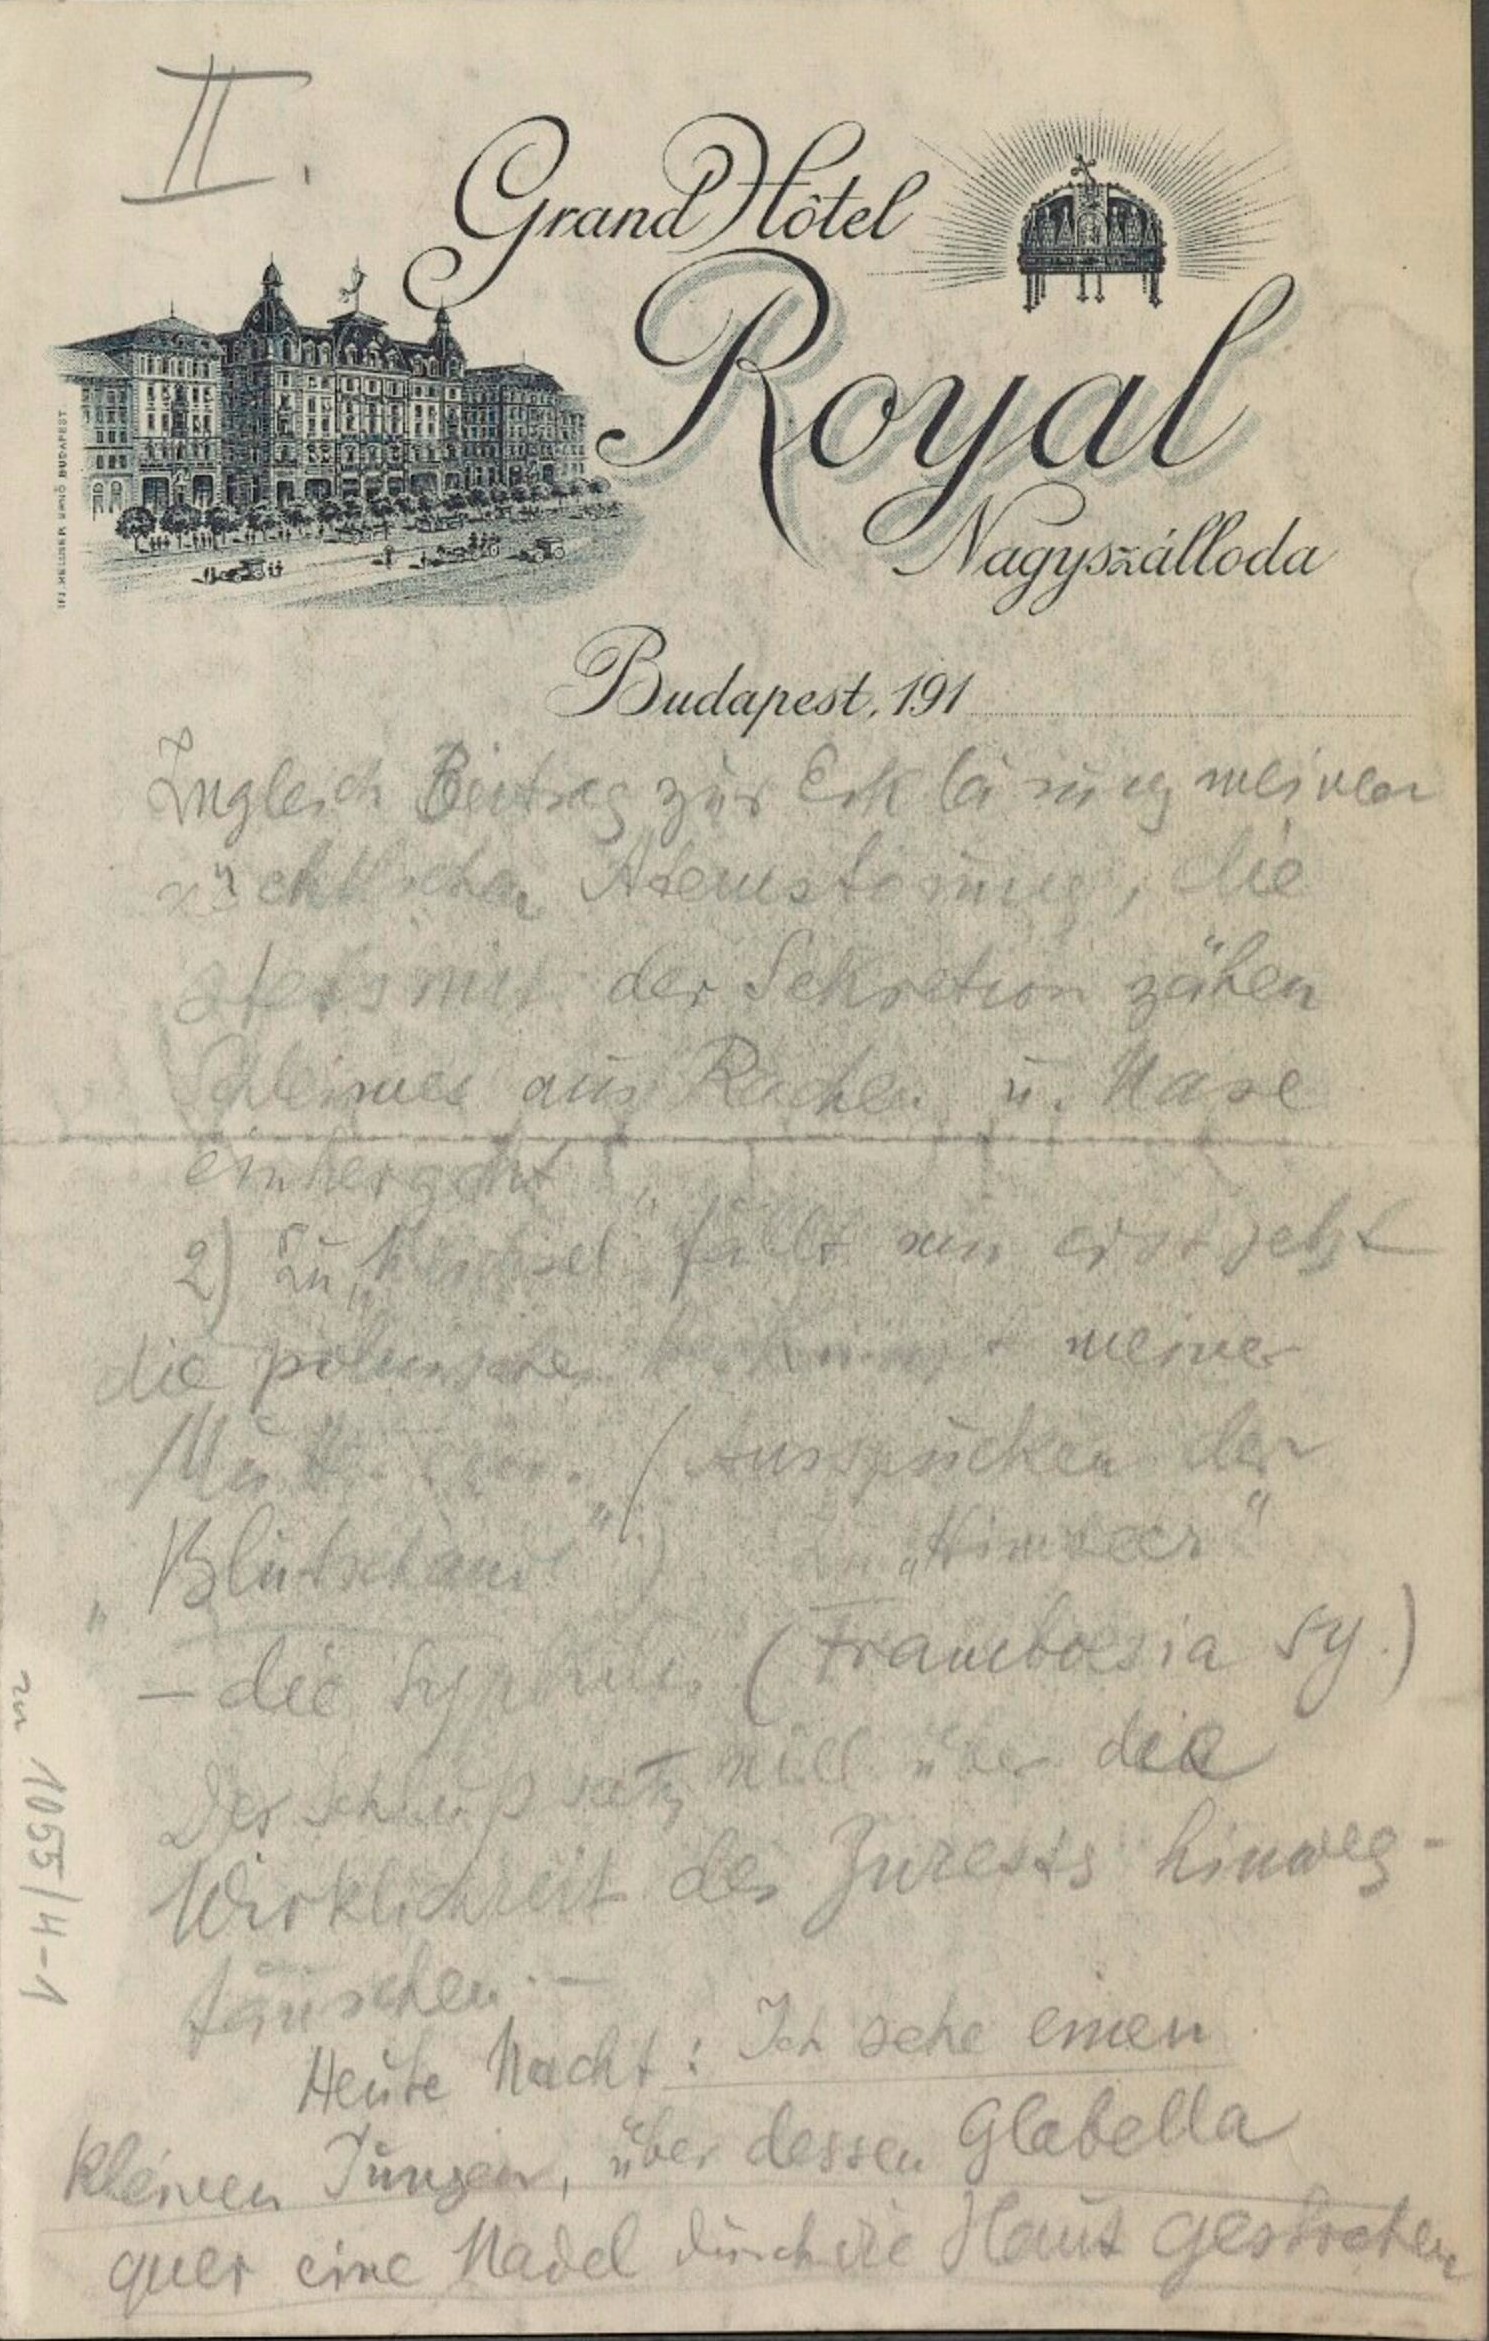 II.
Grand Hôtel
Royal
Nagyszálloda
IFJ. KELLNER ERNŐ BUDAPEST
Budapest, 191
Zugleich Beitrag zur Erklärung meiner
nächtlichen Atemstörung, die
stets mit der Sekretion zähen
Schleimes aus Rachen u. Nase
einhergeht
2) Zu „ “ fällt mir erst jetzt
die polnische Herkunft meiner
Mutter ein. (Ausspucken der
„Blutschande“) Zu „Himbeer“
– die Syphilis (Framboesia sy.)
Der Schlußsatz will über die
Wirklichkeit des Inzests hinweg-
täuschen. –
Heute Nacht: Ich sehe einen
kleinen Jungen, über dessen Glabella
quer eine Nadel durch die Haut gestochen
zu 1055/4-1